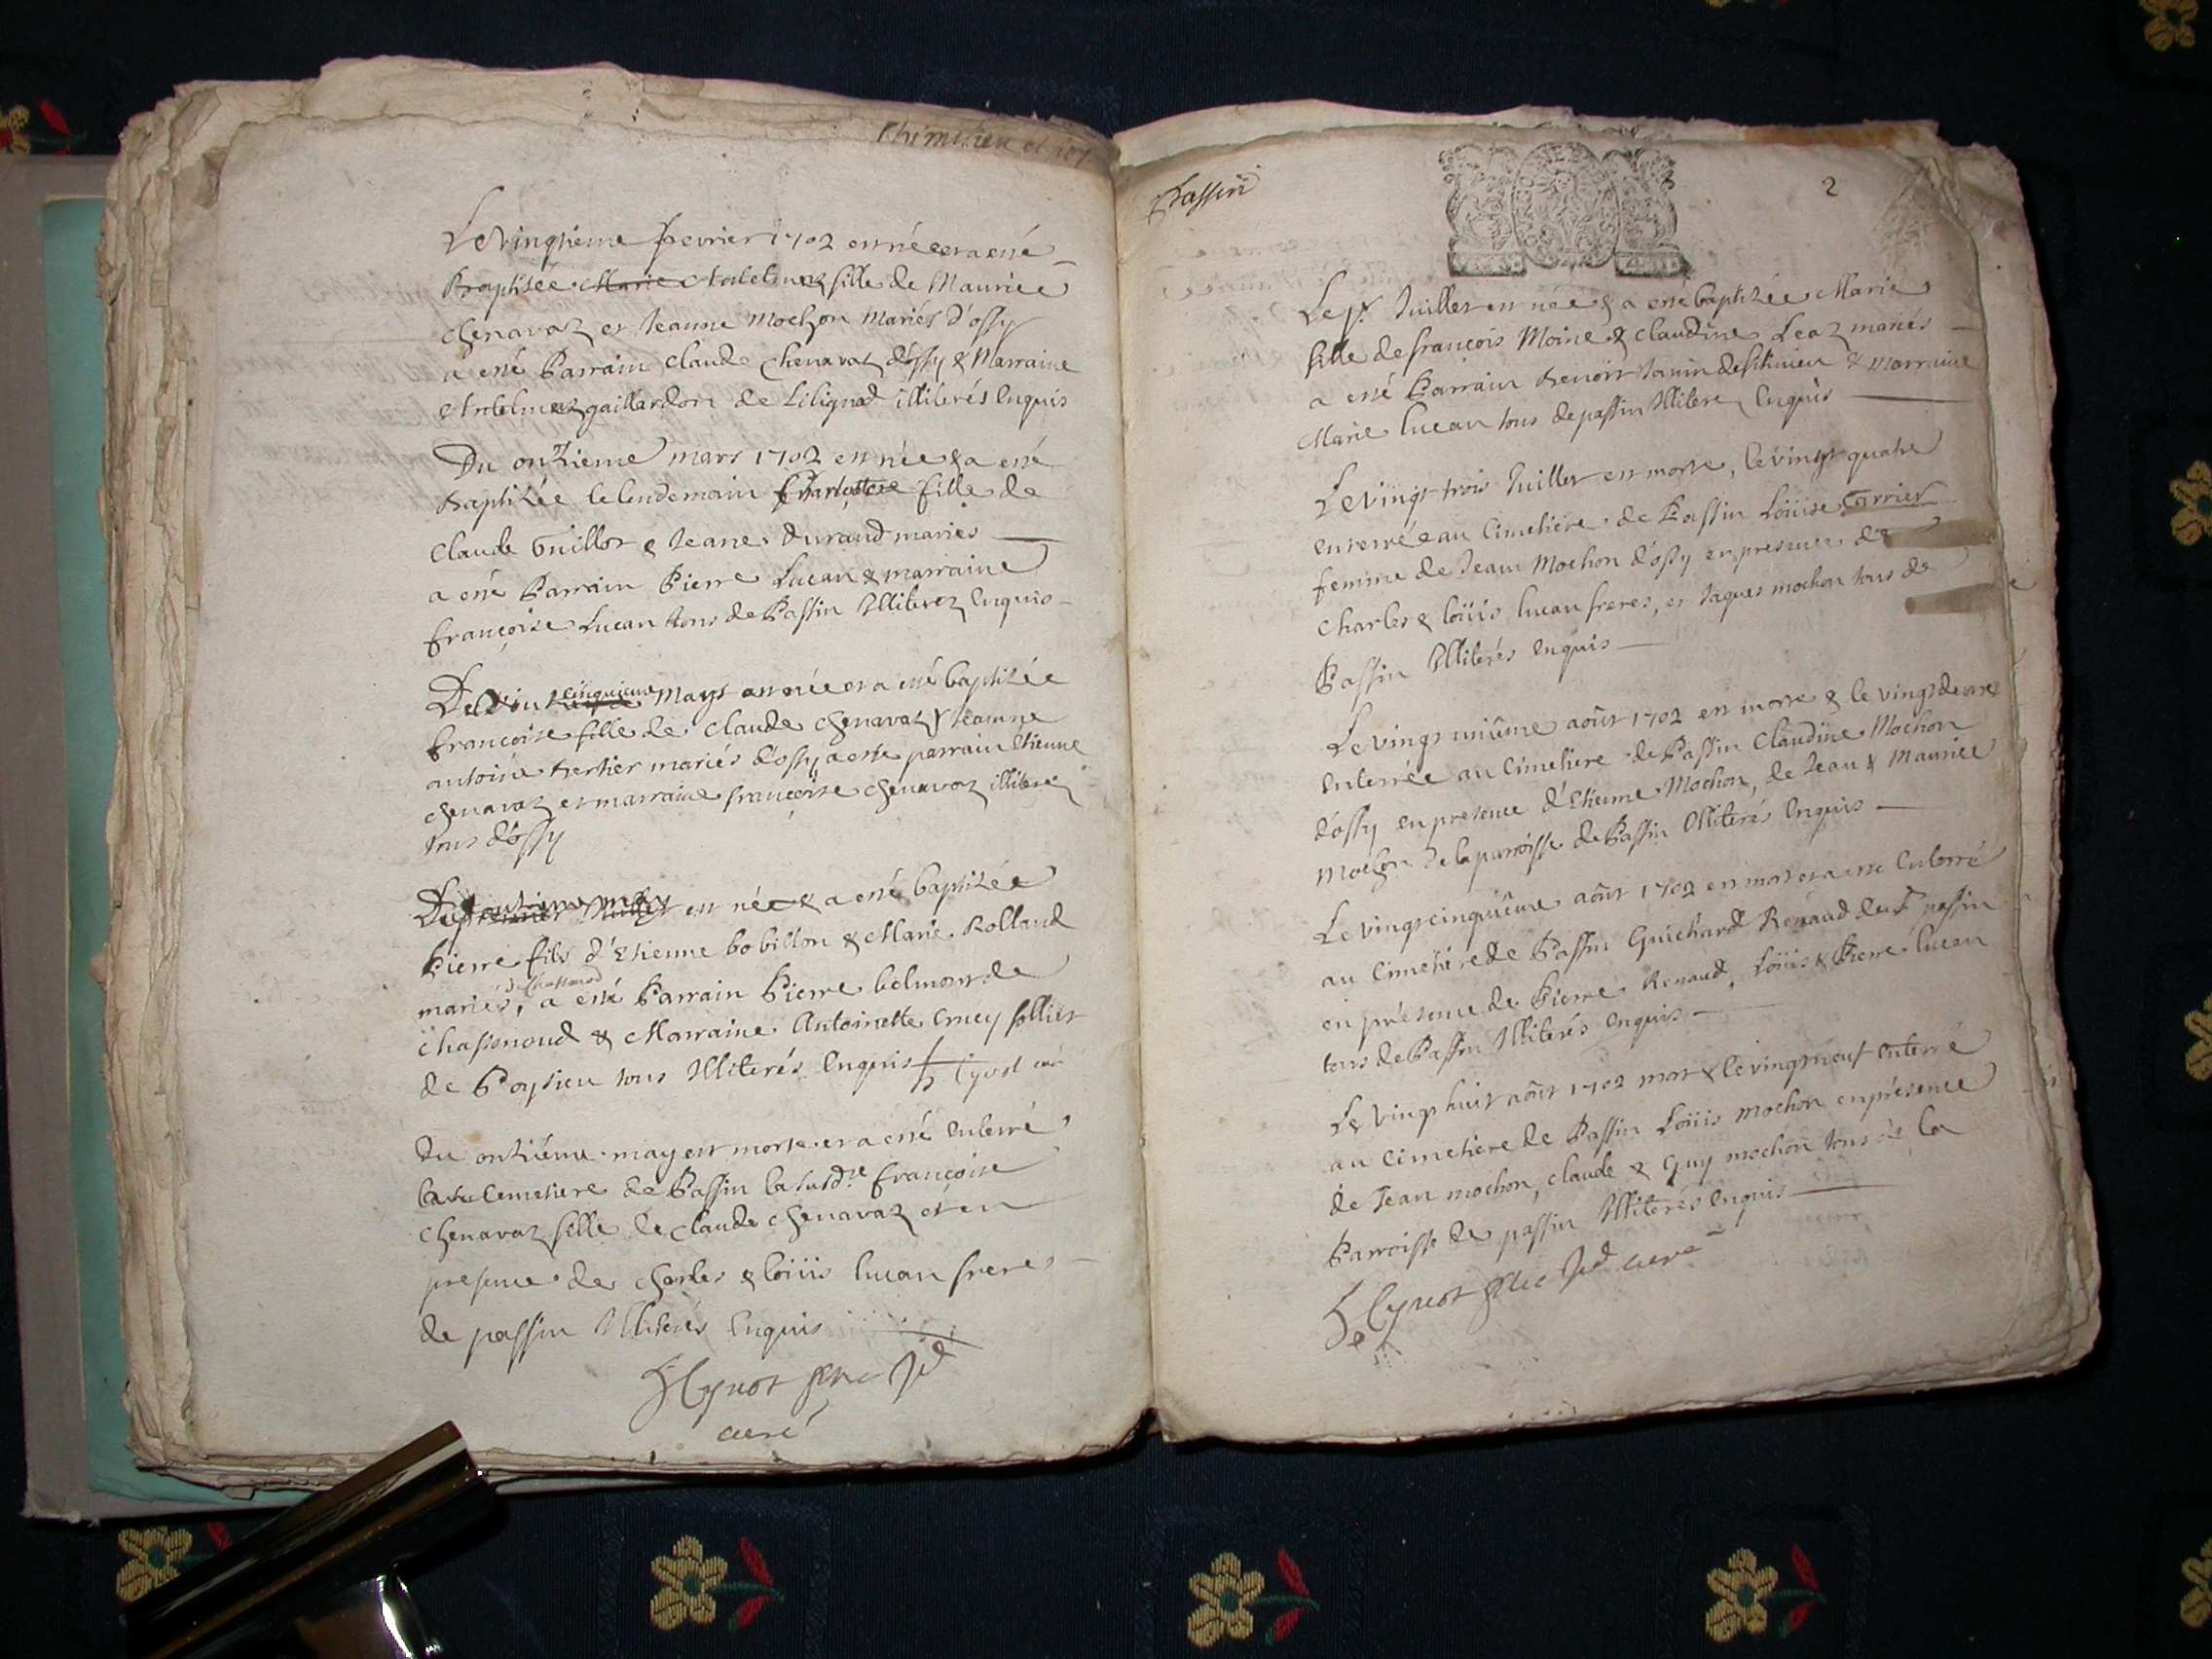 Le vingtieme fevrier 1702 est née et a esté
Baptisée Marie Antelmaz fille de Maurice
chenavaz et Jeanne Mochon Mariés d'ossy
a esté Parrain Claude Chenavaz d'ossy & Marraine
Antelmaz gaillardon de Lilignod illiterés Enquis
Du onzieme mars 1702 est née & a esté
Baptizée le lendemain Charlotte fille de
Claude Guillot & Jeane Durand mariés
a esté Parrain Pierre Lucan & marraine
françoise Lucan tous de Passin Illiterez Enquis
cinquieme
Mays est née et a esté baptizée
françoise fille de Claude Chenavaz & Jeanne
antoine tertier mariés d'ossy a esté parrain Etienne
chenavaz et marraine françoise chenavaz illiterez
tous d'ossy
est née & a esté baptizée
Pierre fils d'Etienne bobillon & Marie Rolland
de Chassonod
mariés, a esté Parrain Pierre belmont de
Chassonoud & Marraine Antoinette
de Poysieu tous Illiterés Enquis
Du onziéme may est morte et a esté Enterré
Cemetiere de Passin la susd.te françoise
Chenavaz fille de Claude Chenavaz et en
presence de Charles & loüis lucan freres
de passin Illiterés Enquis
curé
Passin
2
Juillet est née & a esté baptizée Marie
fille de françois Moine & Claudine Leaz mariés
a esté Parrain Benoit Janin & Marraine
Marie lucan tous de passin Illiterez Enquis
Le vingt trois Juillet est morte, le vingt quatre
enterrée au Cimetiere de Passin Loüise Carrier
femme de Jean Mochon d'ossy en presence de
Charles & loüis lucan freres, et Jaques mochon tous de
Passin Illiterés Enquis
Le vingt uniême août 1702 est morte & le vingt deuxe
Enterrée au Cimetiere de Passin Claudine Mochon
d'ossy en presence d'Etienne Mochon, de Jean & Maurice
Mochon de la parroisse de Passin Illiterés Enquis
Le vingt cinquiême août 1702 est mort et a esté Enterré
au Cimetiére de Passin Guichard Renaud passin
en présence de Pierre Renaud, Loüis & Pierre lucan
tous de Passin Illiterés Enquis
Le Vingt huit août 1702 mort & le vingt neuf Enterré
au Cimetiere de Passin Loüis Mochon en présence
de Jean mochon, claude & Guy mochon tous de la
Parroisse de passin Illiterés Enquis
curé